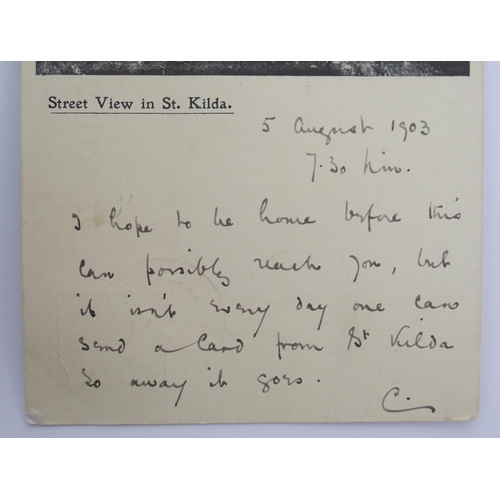 Street View in St. Kilda.
5 August 1903
7.30 p.m.
I hope to be home before this
can possibly reach you, but
it isn't every day one can
send a Card from St Kilda
So away it goes.
C.